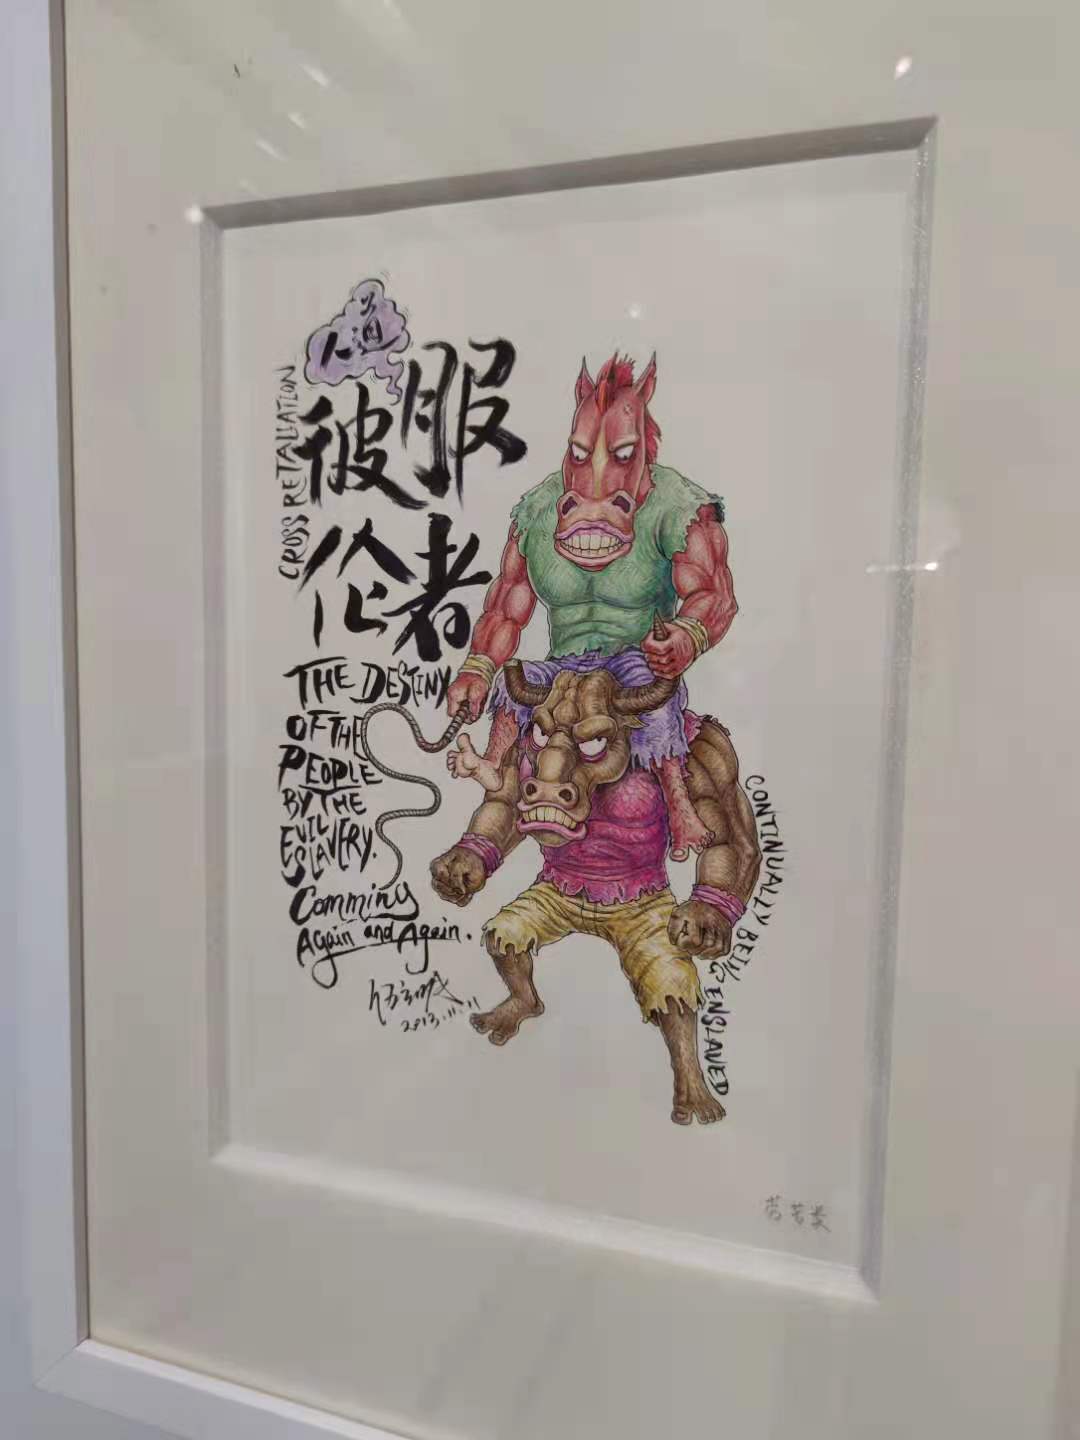 人道
被服
伦者
CROSS RETALIATION
THE DESTINY
OF THE
PEOPLE
BY THE
EVIL
SLAVERY.
Comming
Again and Again.
2013.11.11
CONTINUALLY BEING ENSLAVED